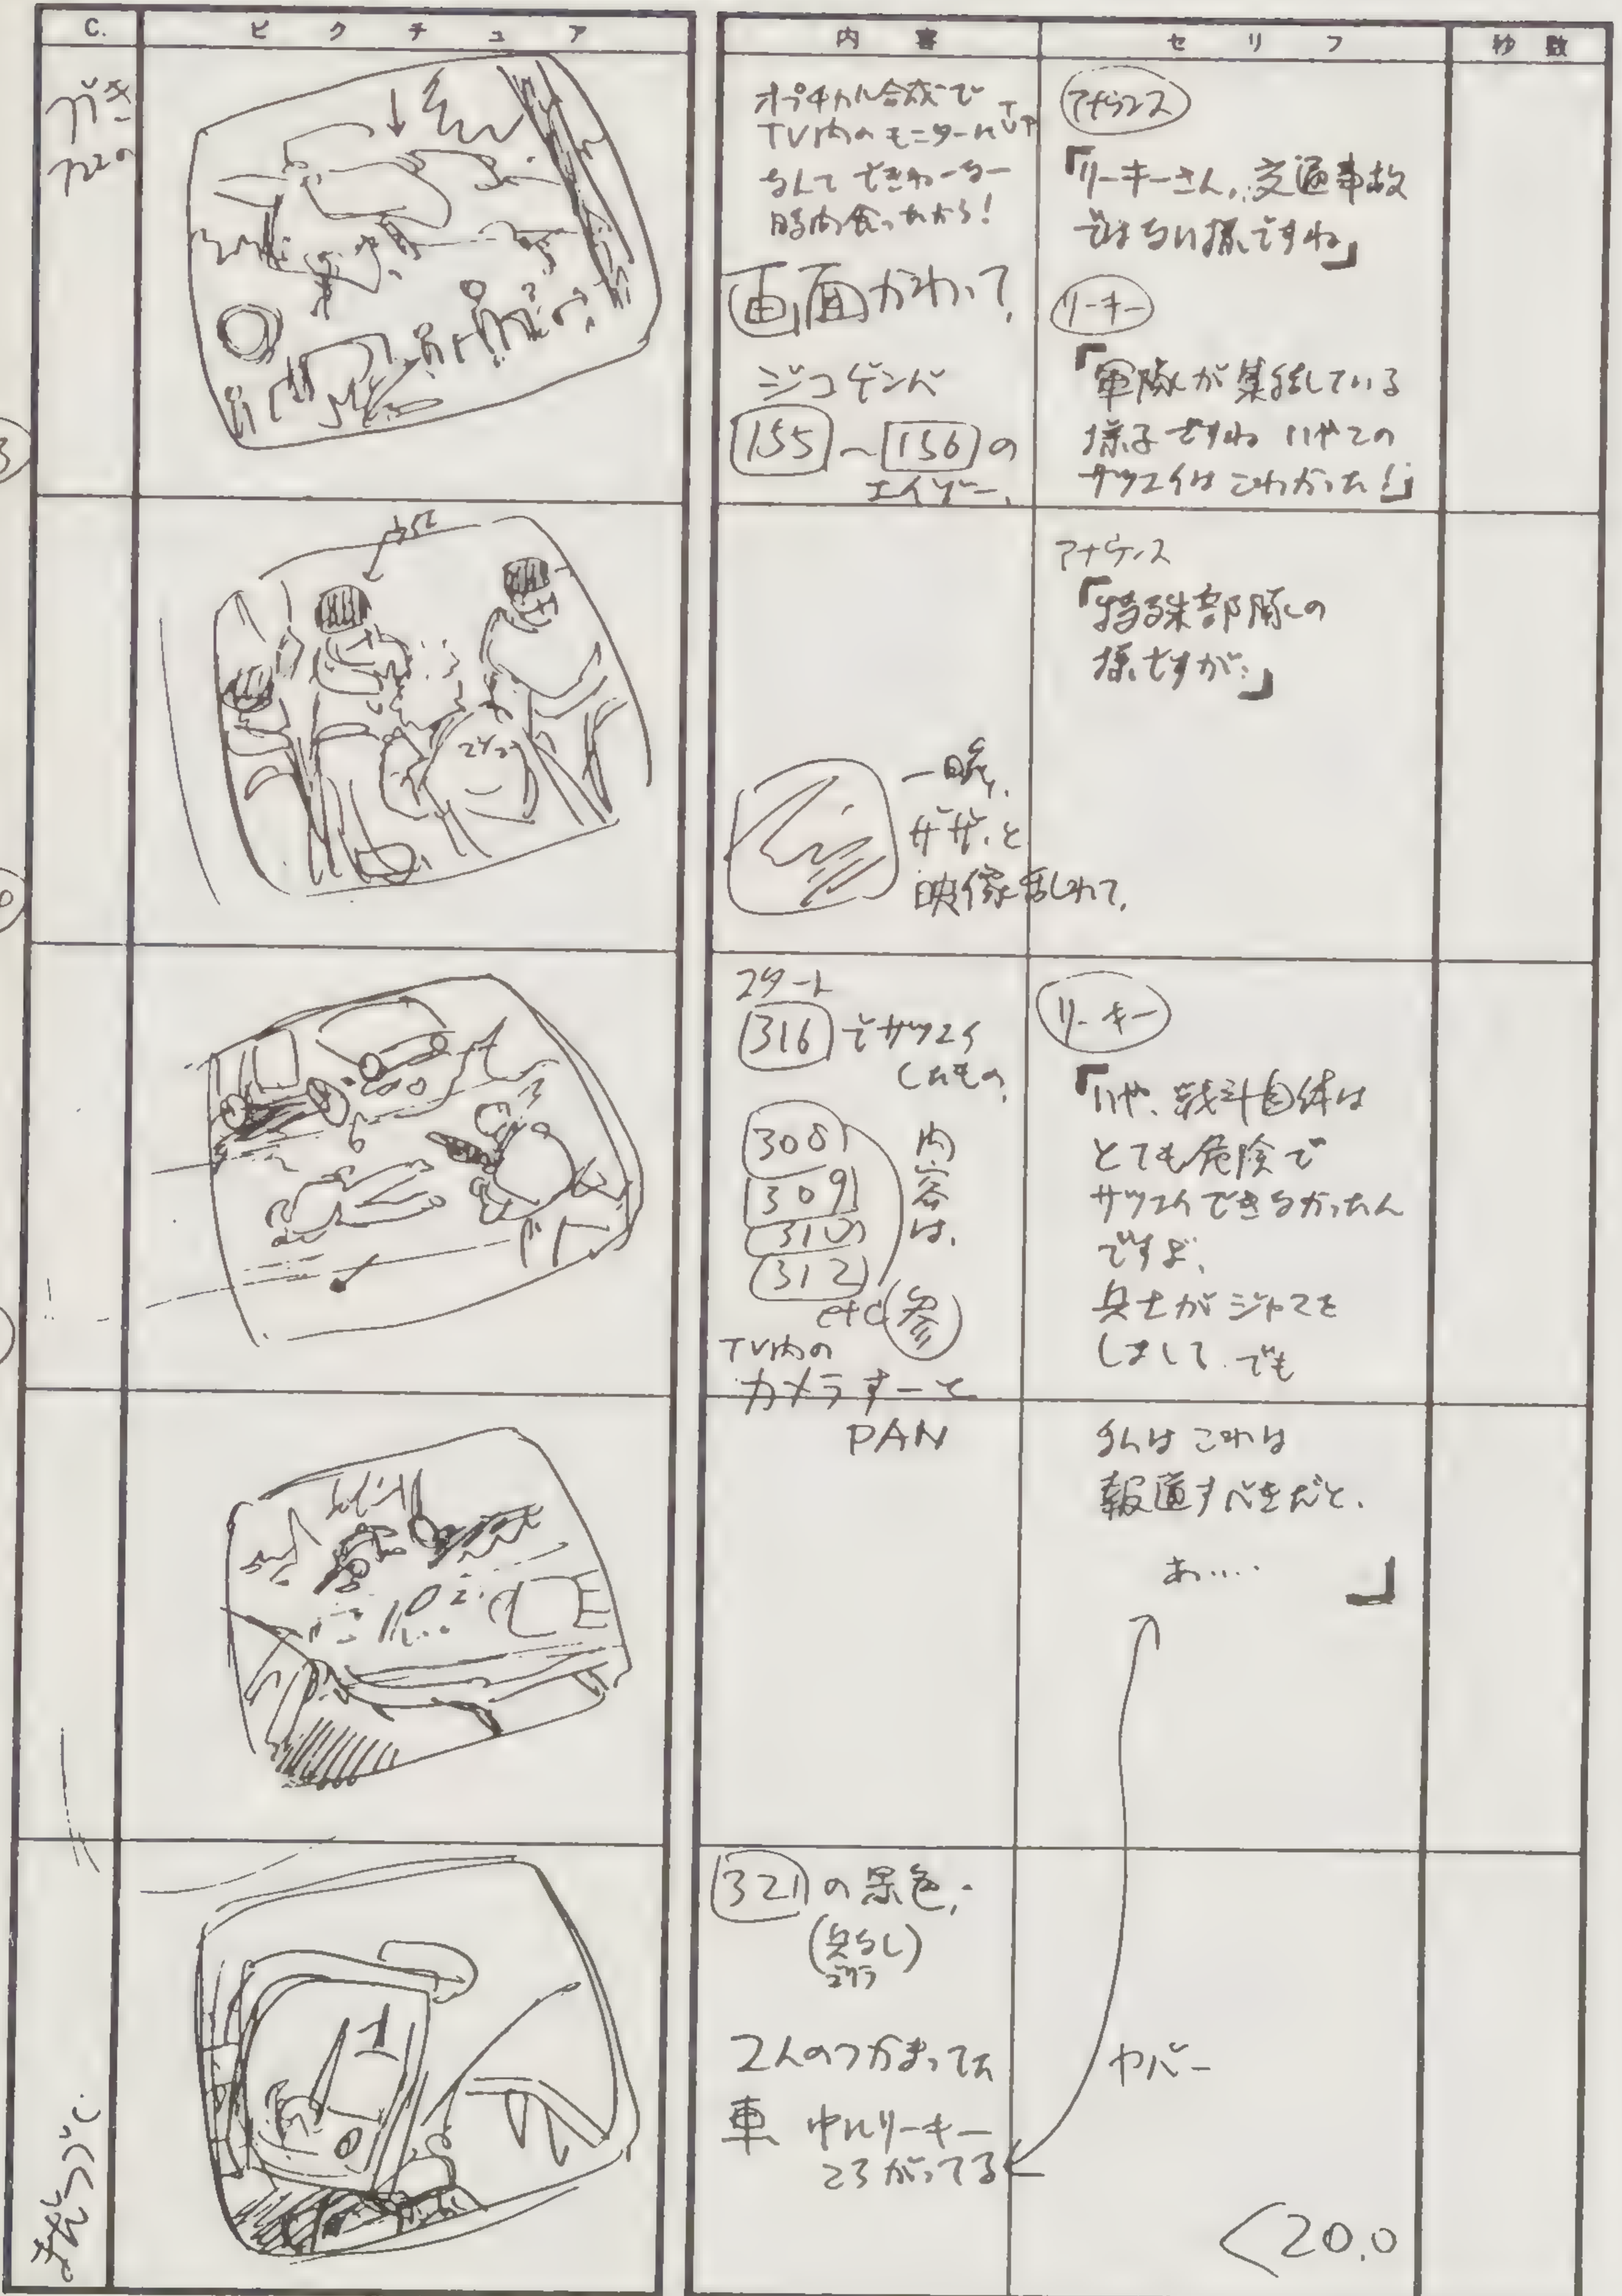 C.
ピクチュア
内容
セリフ
秒数
オプチカル合成で
TV内のモニターに
なんて できねーなー
時間食ったから!
画面かわって、
ジコゲンバ
155〜156の
エイゾー、
アナウンス
「リーキーさん、交通事故
ではない様ですね」
リーキー
「軍隊が集結している
様子ですね いやこの
サツエイは こわかった!」
アナウンス
「特殊部隊の
様ですが、」
一瞬、
ザザ、と
映像乱れて、
スタート
316でサツエイ
したもの、
308
309
310
312
etc 参
内容は、
TV内の
カメラすーと
PAN
リーキー
「いや、戦斗自体は
とても危険で
サツエイできなかったん
ですよ、
兵士がジャマを
しまして、でも
私は これは
報道すべきだと、
あ・・・・ 」
321の景色、
(兵なし)
2人のつかまってた
車 中にリーキー
ころがってる
ヤバー
<20.0
まだつづく